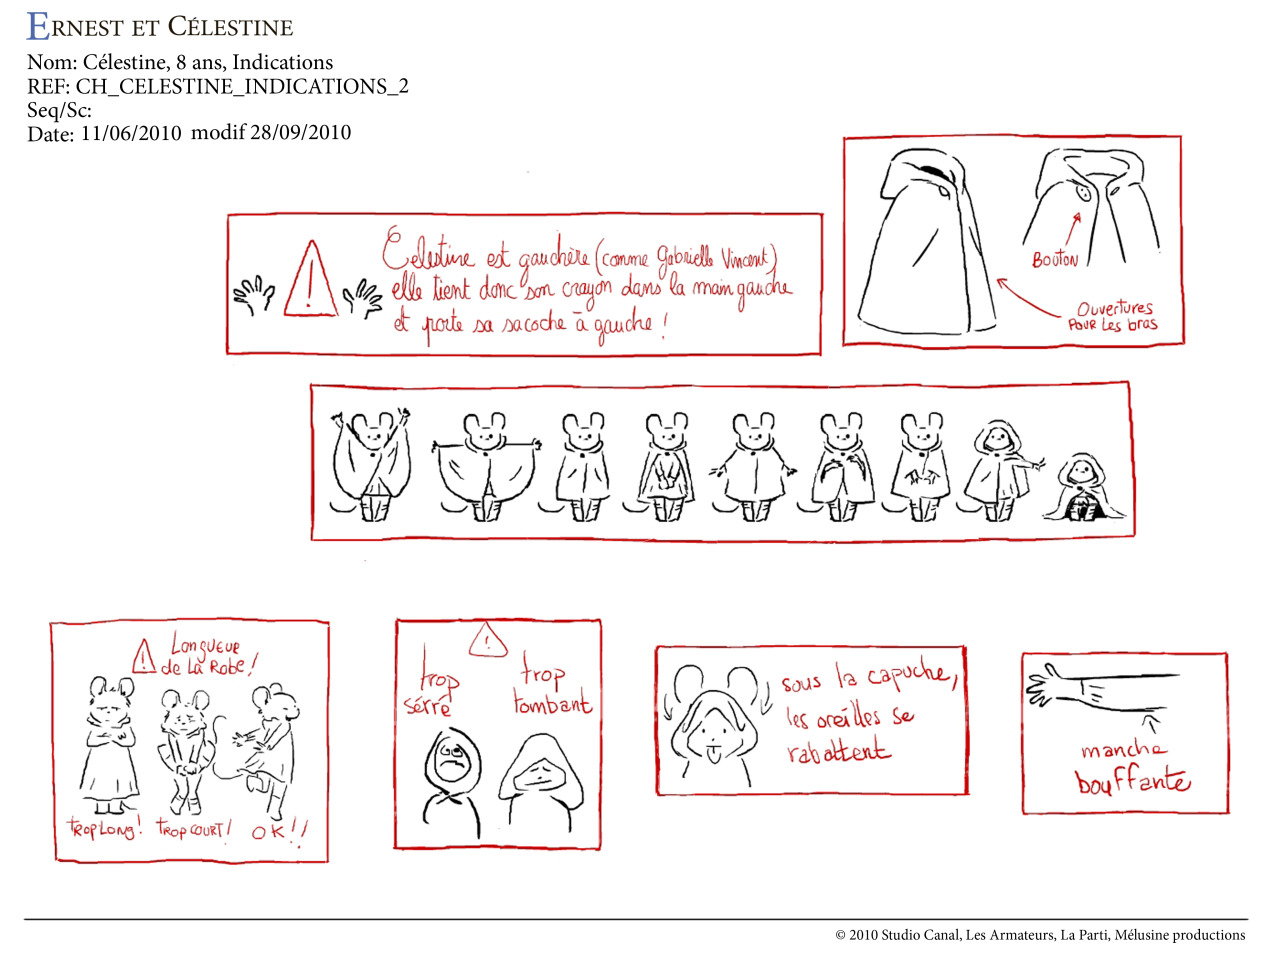 ERNEST ET CÉLESTINE
Nom: Célestine, 8 ans, Indications
REF: CH_CELESTINE_INDICATIONS_2
Seq/Sc:
Date: 11/06/2010 modif 28/09/2010
Célestine est gauchère (comme Gabrielle Vincent)
elle tient donc son crayon dans la main gauche
et porte sa sacoche à gauche !
BOUTON
OUVERTURES
POUR LES bras
LONGUEUR
de LA ROBE !
TROP LONG !
TROP COURT !
OK !!
!
trop
sérré
trop
tombant
sous la capuche,
les oreilles se
rabattent
manche
bouffante
© 2010 Studio Canal, Les Armateurs, La Parti, Mélusine productions